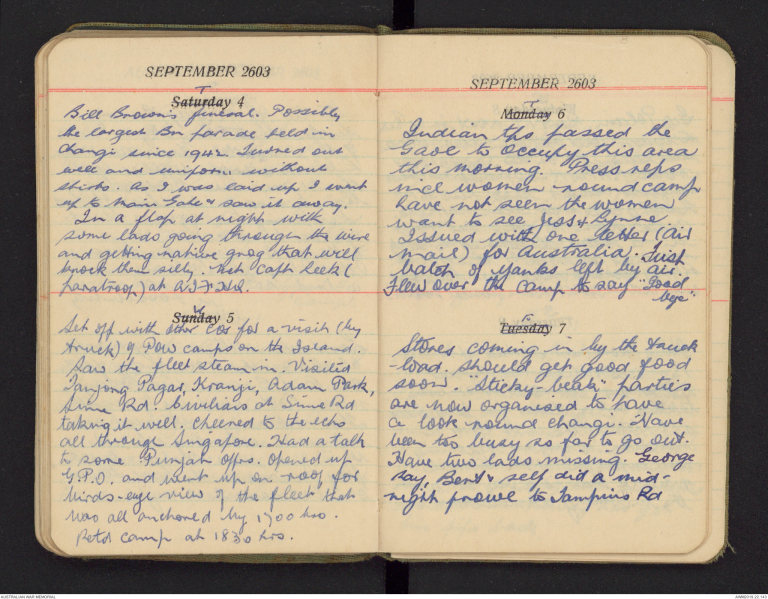 SEPTEMBER 2603
T
Saturday 4
Bill Brown's funeral. Possibly
the largest Bn parade held in
Changi since 1942. Turned out
well and uniform without
shirts. As I was laid up I went
up to Main Gate & saw it away.
In a flap at night with
some lads going through the wire
and getting native grog that will
knock them silly. Met Capt
(paratroop) at A.I.F. H.Q.
W
Sunday 5
Set off with other COs for a visit (by
truck) of POW camps on the Island.
Saw the fleet steam in. Visited
Tanjong Pagar, Kranji, Adam Park,
Sime Rd. Civilians at Sime Rd
taking it well, cheered to the echo
all through Singapore. Had a talk
to some Punjab offrs. Opened up
G.P.O. and went up on roof for
birds-eye view of the fleet that
was all anchored by 1700 hrs.
Retd camp at 1830 hrs.
SEPTEMBER 2603
T
Monday 6
Indian tps passed the
Gaol to occupy this area
this morning. Press reps
incl women round camp
have not seen the women
want to see Jess & Lynne
Issued with one letter (air
mail) for Australia. First
batch of Yanks left by air.
Flew over the camp to say "Good
bye"
F
Tuesday 7
Stores coming in by the truck
-load. Should get good food
soon. "Sticky-beak" parties
are now organised to have
a look round Changi. Have
been too busy so far to go out.
Have two lads missing. George
Ray, Bert & self did a mid-
night prowl to Tampins Rd
AUSTRALIAN WAR MEMORIAL